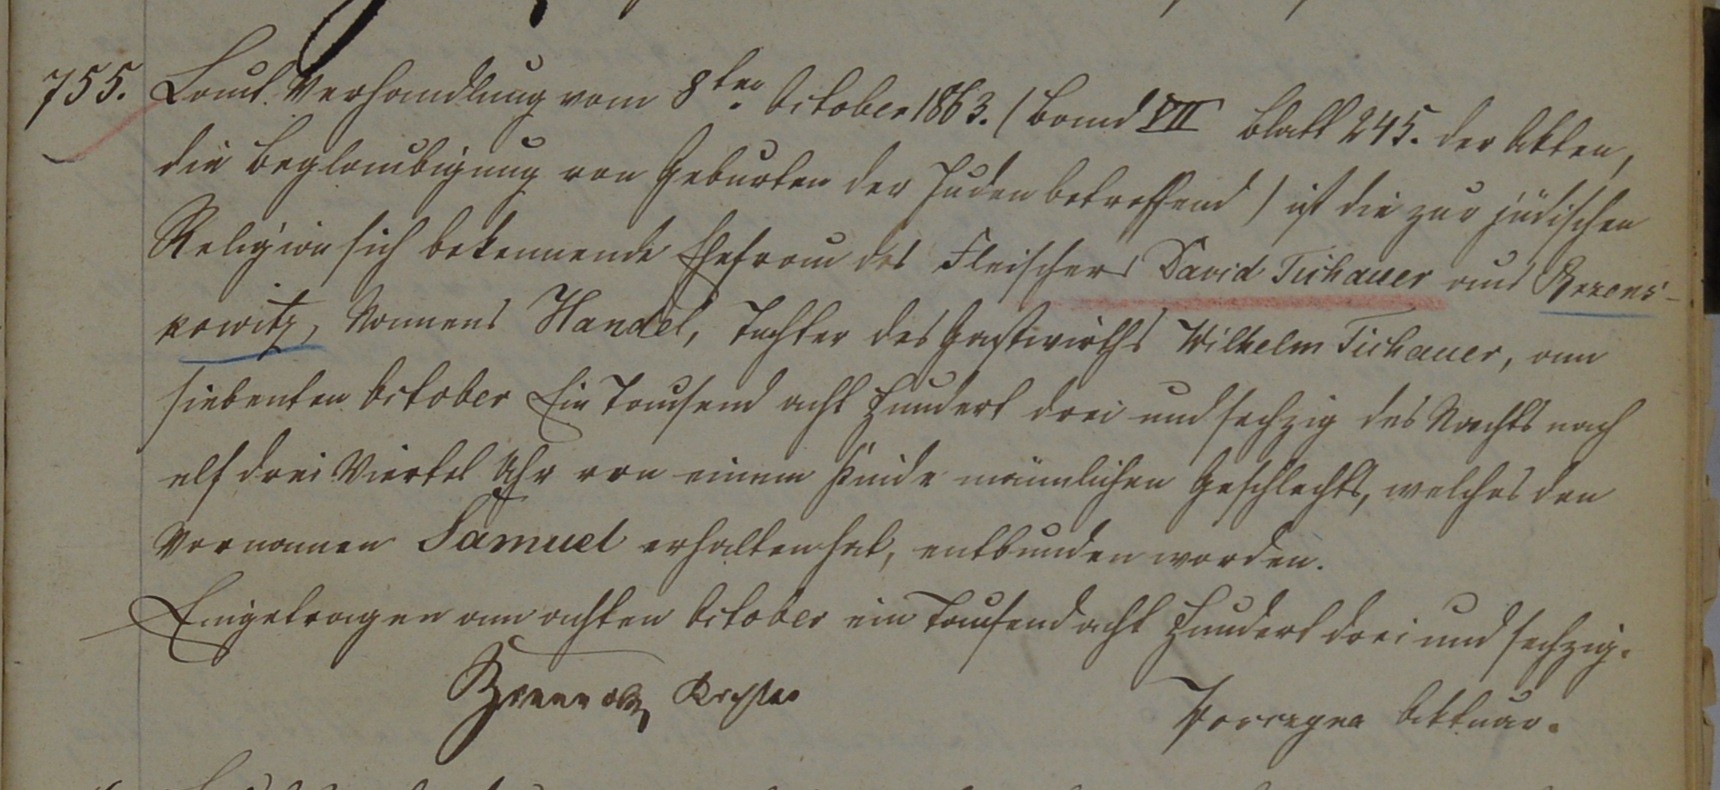 755. Laut Verhandlung vom 8ten October 1863. (Band VII Blatt 245. der Akten,
die Beglaubigung von Geburten der Juden betreffend) ist die zur jüdischen
Religion sich bekennende Ehefrau des Fleischers David Tichauer aus
kowitz, Namens Handel, Tochter des Gastwirths Wilhelm Tichauer, am
siebenten October Ein Tausend acht Hundert drei und sechzig des Nachts nach
elf drei Viertel Uhr von einem Kinde männlichen Geschlechts, welches den
Vornamen Samuel erhalten hat, entbunden worden.
Eingetragen am achten October ein Tausend acht Hundert drei und sechzig.
Aktuar.